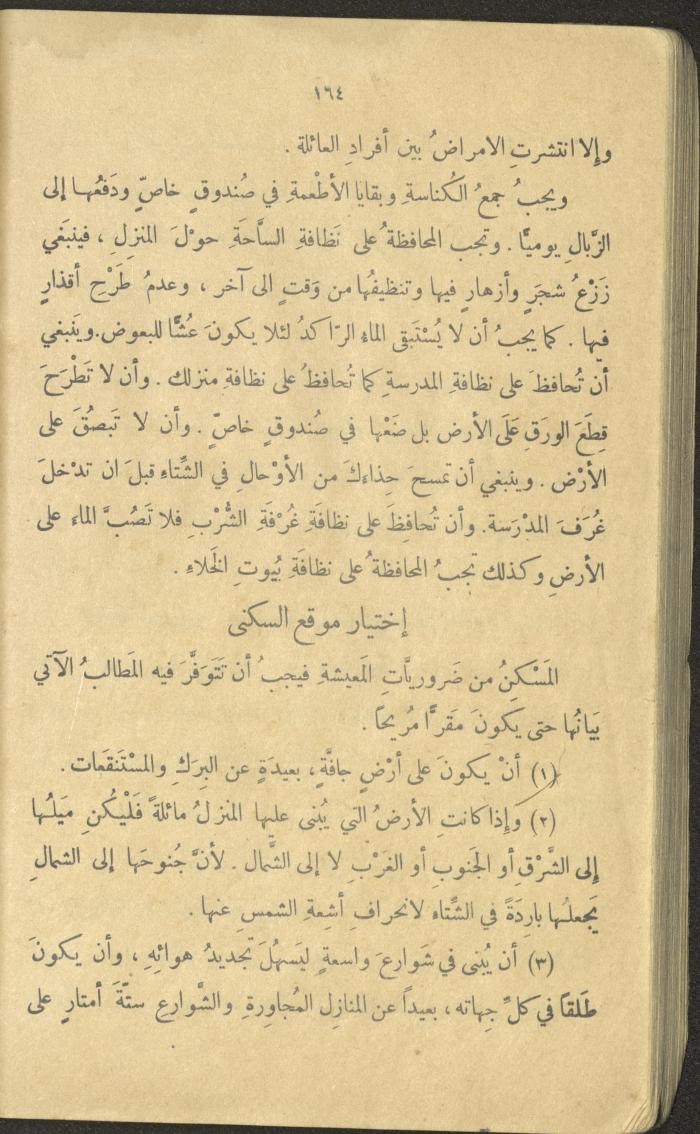 ١٦٤
وإلا انتشرتِ الامراضُ بين أفرادِ العائلة .
ويجبُ جمعُ الكُناسةِ وبقايا الأطْعمةِ في صُندوقٍ خاصٍّ ودَفعُها إلى
الزَّبالِ يوميًّا . وتجب المحافظةُ على نَظافةِ السَّاحَةِ حوْلَ المنزلِ ، فينبَغي
زَرْعُ شجَرٍ وأزهارٍ فيها وتنظيفُها من وَقتٍ الى آخر ، وعدمُ طَرْحِ أقذارٍ
فيها . كما يجبُ أن لا يُسْتَبقى الماءِ الرّاكدُ لئلا يكونَ عُشًّا للبعوض . وينبغي
أن تُحافظَ على نظافةِ المدرسةِ كما تُحافظُ على نظافةِ منزلك . وأن لا تَطْرَحَ
قِطَعَ الورَقِ عَلَى الأرض بل ضَعْها في صُندوقٍ خاصٍّ . وأن لا تَبصُقَ على
الأرْض . وينبغي أن تمسحَ حِذاءكَ من الأوْحالِ في الشِّتاءِ قبلَ ان تدْخلَ
غُرَفَ المدْرَسة . وأن تُحافِظَ على نظافَةِ غُرْفةِ الشُّرْبِ فلا تَصُبَّ الماءِ على
الأرضِ وكذلك تجبُ المحافظةُ على نظافَةِ بُيوتِ الخَلاءِ .
إختيار موقع السكنى
المَسْكنُ من ضَروريَّاتِ المَعيشةِ فيجبُ أن تَتَوَفَّرَ فيه المَطالبُ الآتي
بَيانُها حتى يكونَ مَقرًّا مُريحاً .
(١) أنْ يكونَ على أرْضٍ جافَّةٍ ، بعيدَةٍ عن البِرَكِ والمسْتَنقَعات .
(٢) وإذا كانتِ الأرضُ التي يُبْنى عليها المنزلُ مائلةً فَلْيكُنِ مَيلُها
إلى الشَّرْقِ أو الجَنوبِ أو الغَرْبِ لا إلى الشَّمال . لأنَّ جُنوحَها إلى الشمالِ
يَجعلُها بارِدَةً في الشِّتاءِ لانحرافِ أشعةِ الشمسِ عنها .
(٣) أن يُبْنى في شَوارعَ واسعةٍ ليَسهُلَ تجديدُ هوائِهِ ، وأن يكونَ
طَلقاً في كلِّ جِهاته ، بعيداً عن المنازِل المُجاوِرةِ والشَّوارعِ ستّةَ أمتارٍ على